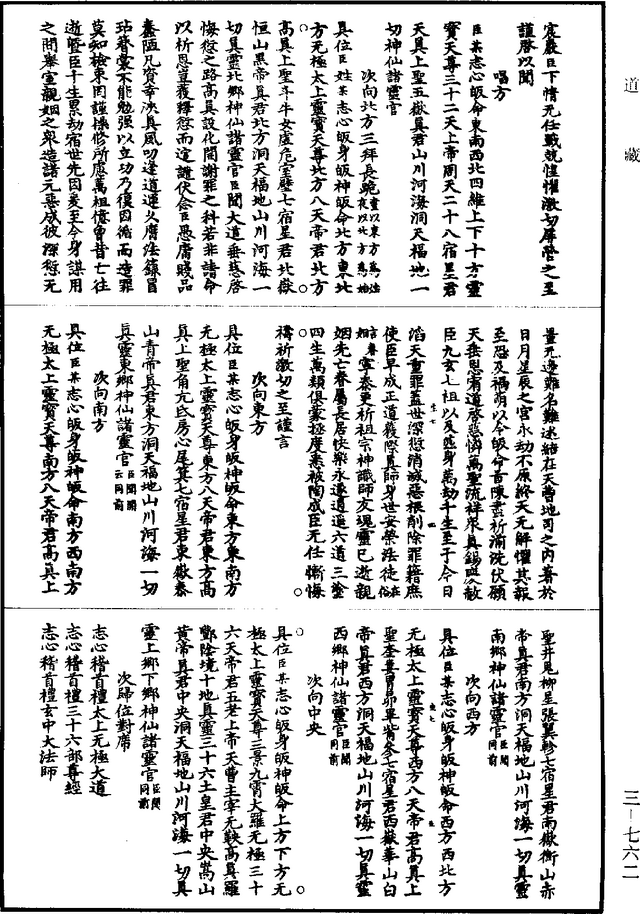 道藏
三—七六二
宸嚴臣下情無任戰兢惶懼激切屏營之至
謹啓以聞
唱方
臣某志心皈命東南西北四維上下十方靈
寶天尊三十二天上帝周天二十八宿星君
天真上聖五嶽真君山川河海洞天福地一
切神仙諸靈官
次向北方三拜長跪
具位臣姓某志心皈身皈神皈命北方東北
方無極太上靈寶天尊北方八天帝君北方
高真上聖斗牛女虛危室壁七宿星君北嶽
恒山黑帝真君北方洞天福地山川河海一
切真靈北鄉神仙諸靈官臣聞大道垂慈啓
悔愆之路高真設化開謝罪之科若非請命
以祈恩豈獲釋愆而逭譴伏念臣愚庸賤品
蠢陋凡資幸浹真風叨逢道運久膺法籙冒
玷眷蒙不能勉强以立功乃復因循而造罪
莫知檢束罔謹操修所慮萬祖億曾昔亡往
逝暨臣千生累劫宿世先因爰至今身謀用
之間舉室親姻之衆造諸元惡成彼深愆无
量无邊難名難述結在天曹地司之內書於
日月星辰之宮永劫不原終天无解懼其報
至恐及禍萌以今皈命首陳盡祈湔洗伏願
天垂恩宥道啓慈憐萬聖流祥衆真錫慶赦
臣九玄七祖以及然身萬劫千生至于今日
滔天重罪蓋世深愆消滅惡根削除罪籍庶
使臣早成正道獲際真歸身世安榮法徒
泰更祈祖宗神識師友魂靈已逝親
姻先亡眷屬長居快樂永遂逍遥六道三塗
四生萬類俱蒙拯度悉被陶成臣无任懺悔
禱祈激切之至謹言
次向東方
具位臣某志心皈身皈神皈命東方東南方
无極太上靈寶天尊東方八天帝君東方高
真上聖角亢氐房心尾箕七宿星君東嶽泰
山青帝真君東方洞天福地山川河海一切
真靈東鄉神仙諸靈官臣聞云同前
次向南方
具位臣某志心皈身皈神皈命南方西南方
无極太上靈寶天尊南方八天帝君高真上
聖井鬼柳星張翼軫七宿星君南嶽衡山赤
帝真君南方洞天福地山川河海一切真靈
南鄉神仙諸靈官臣聞同前
次向西方
具位臣某志心皈身皈神皈命西方西北方
无極太上靈寶天尊西方八天帝君高真上
聖奎婁胃昴畢觜參七宿星君西嶽華山白
帝真君西方洞天福地山川河海一切真靈
西鄉神仙諸靈官臣聞同前
次向中央
具位臣某志心皈身皈神皈命上方下方无
極太上靈寶天尊三景九霄大羅无極三十
六天帝君五老上帝天曹主宰无鞅高真羅
酆陰境十地真靈三十六土皇君中央嵩山
黃帝真君中央洞天福地山川河海一切真
靈上鄉下鄉神仙諸靈官臣聞同前
次歸位對席
志心稽首禮太上无極大道
志心稽首禮三十六部尊經
志心稽首禮玄中大法師